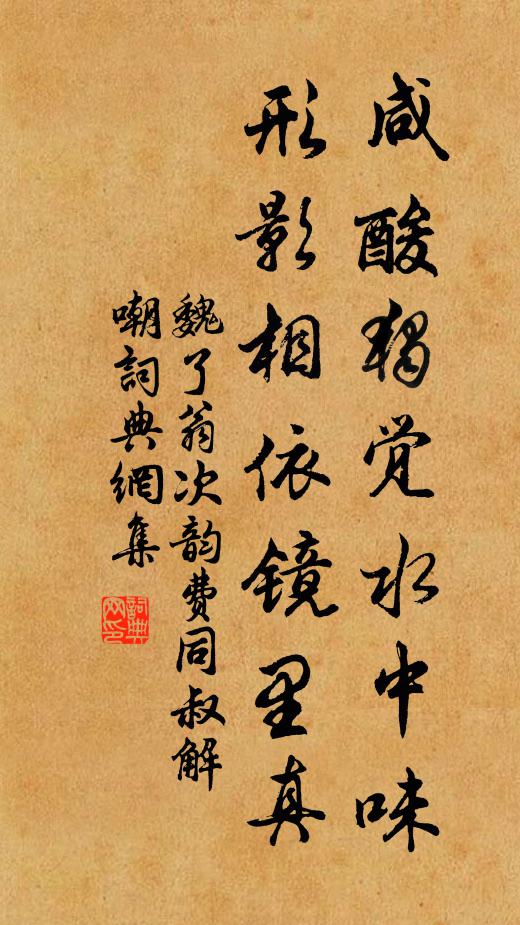 咸酸独觉水中味
形影相依镜里真
魏了翁次韵费同叔解
嘲詞典網集
詞典
网印